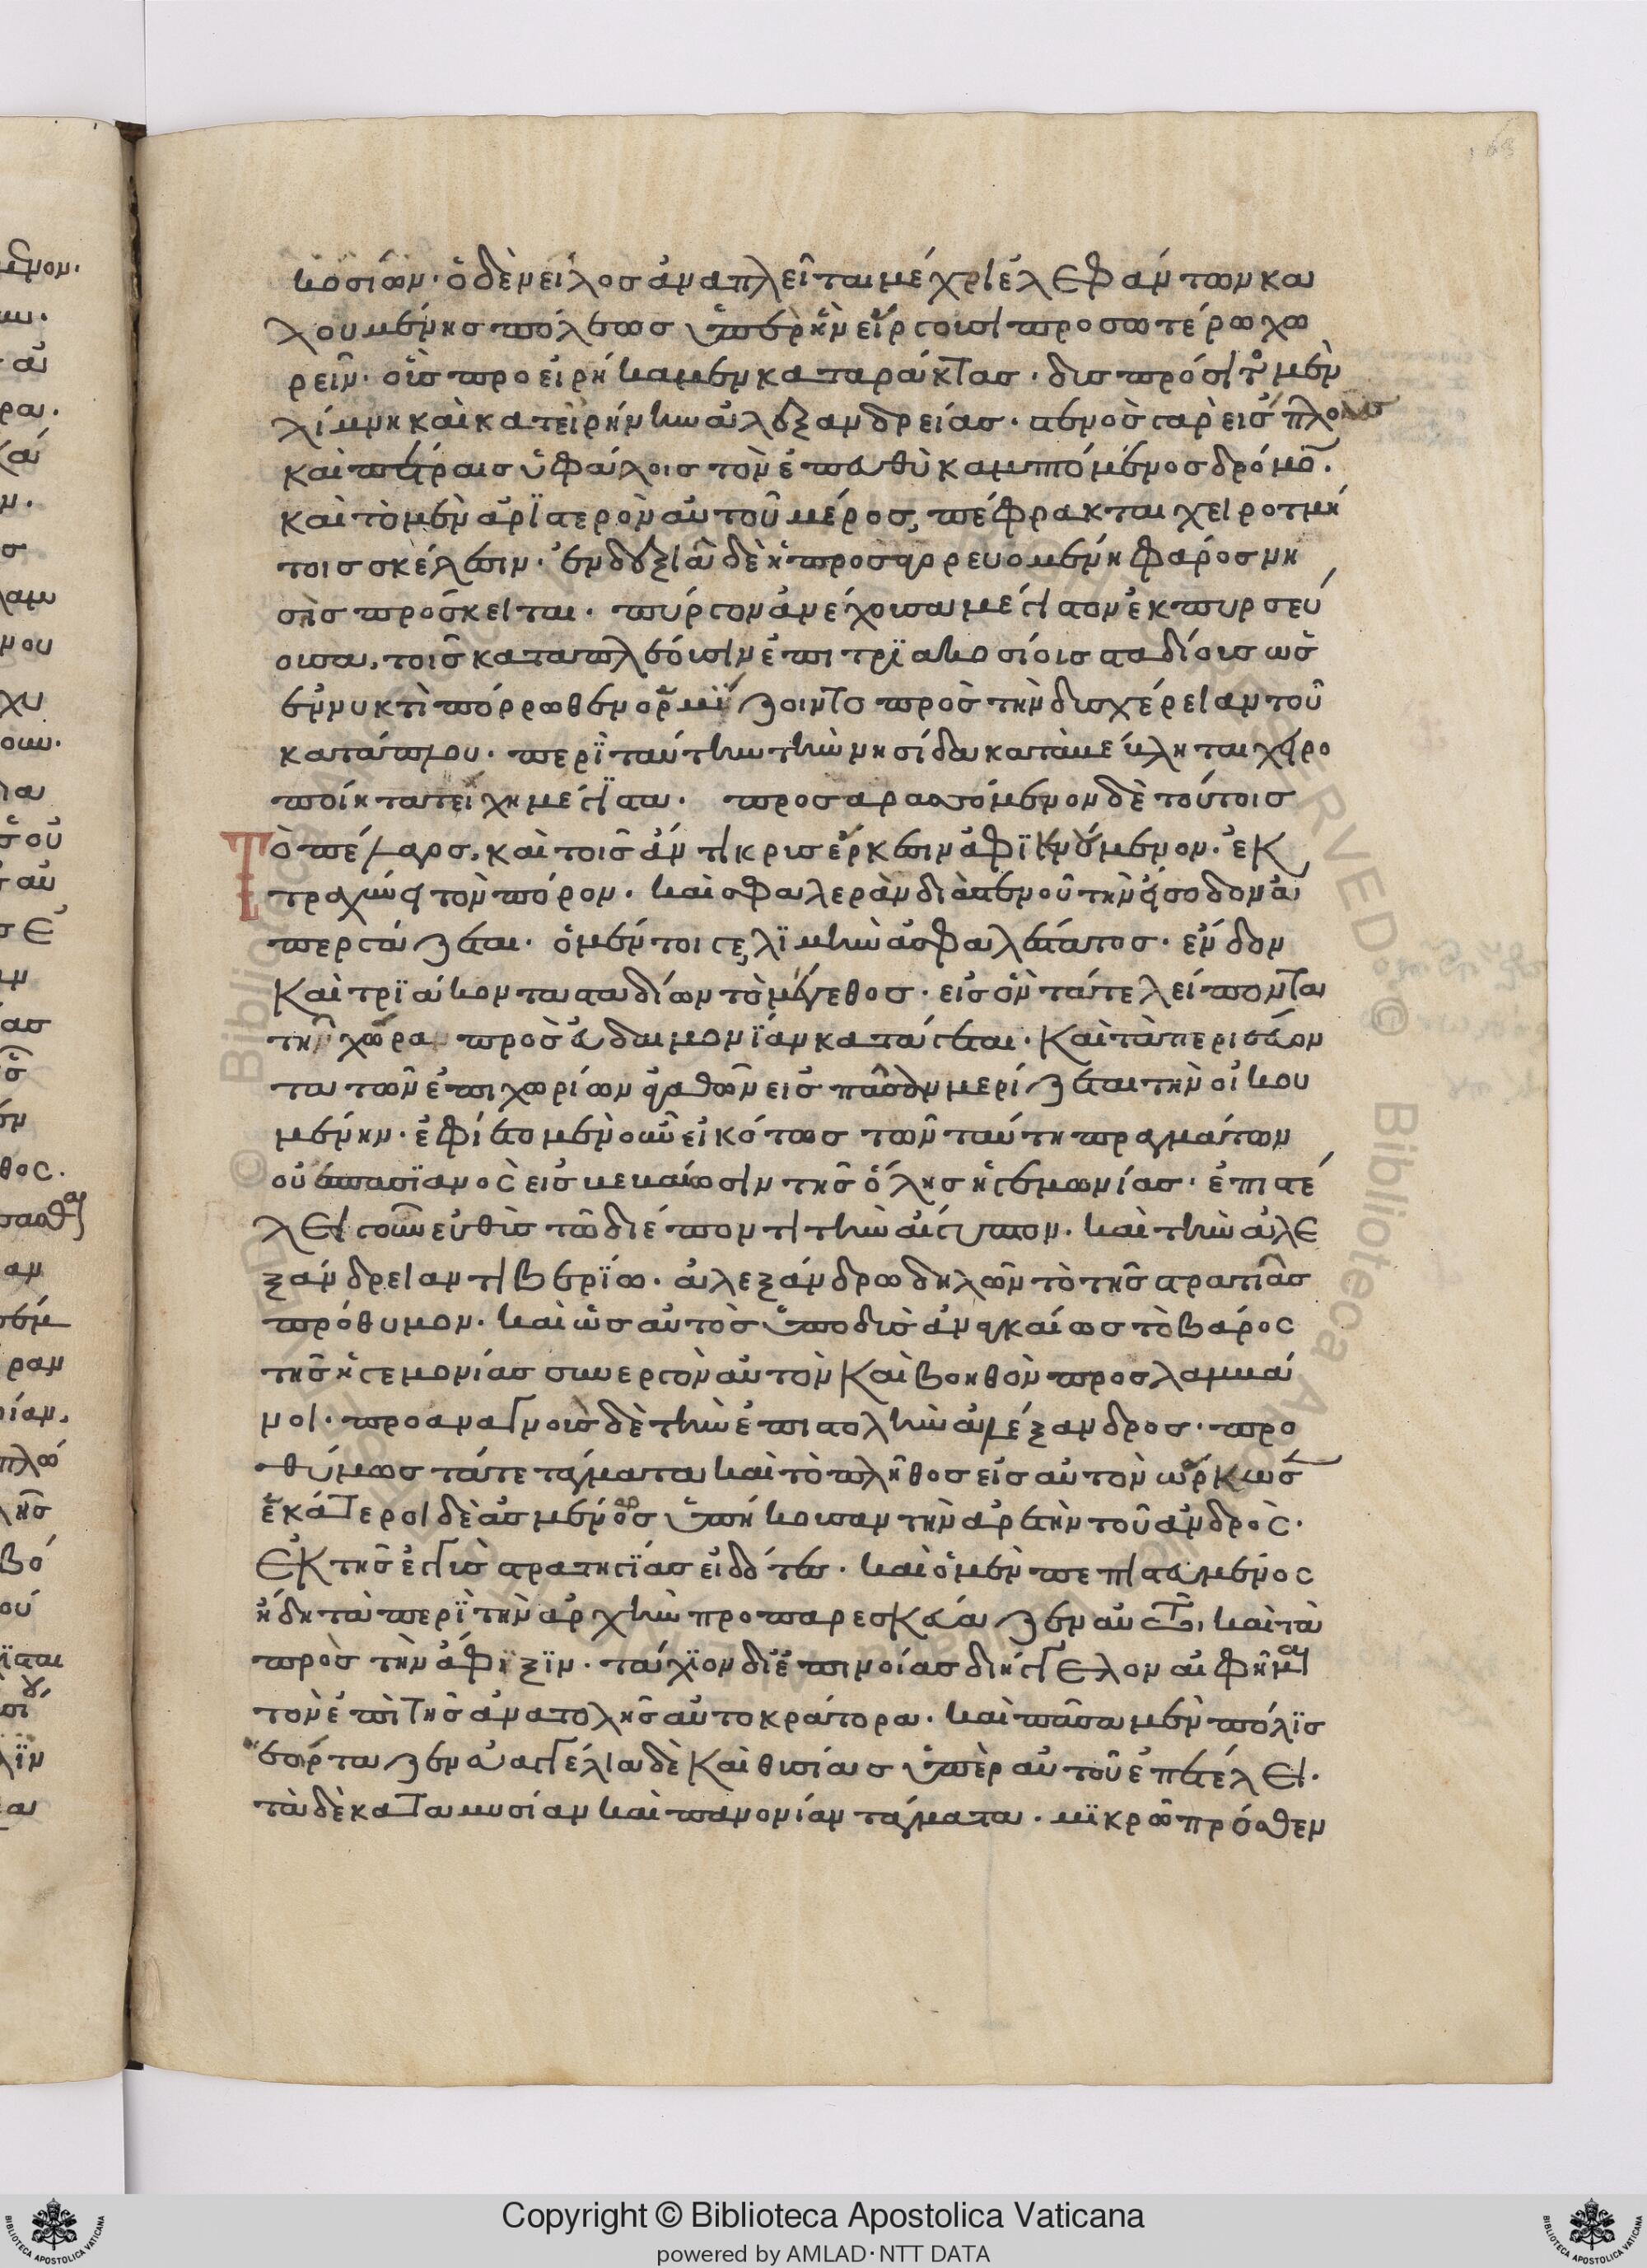 κοσίων· ὁ δὲ νεῖλος ἀναπλεῖται μέχρι ἐλεφάντων κα
λουμένης πόλεως ὑπὲρ ἣν εἴργουσι προσωτέρω χω
ρεῖν· οὓς προειρήκαμεν καταράκτας· δυσπρόσιτος μὲν
λίμην καὶ κατ' εἰρήνην ἀλεξανδρείας· στενός τε γὰρ εἴσπλους
καὶ πέτραις ὑφάλοις τὸν ἐπ' εὐθὺ καμπτόμενος δρόμον·
καὶ τὸ μὲν ἀριστερὸν αὐτοῦ μέρος, πέφρακται χειροτμή
τοις σκέλεσιν· ἐν δεξιᾷ δὲ ἡ προσαγορευομένη φάρος νη
σὶς πρόσκειται· πύργον ἀνέχουσα μέγιστον ἐκπυρσεύ
ουσα, τοῖς καταπλέουσιν ἐπὶ τριακοσίοις σταδίοις ὡς
ἐν νυκτὶ πόρρωθεν ὁρμίζοιντο πρὸς τὴν δυσχέρειαν τοῦ
κατάπλου· περὶ ταύτην τὴν νησίδα καταβέβληται χειρο
ποίητα τείχη μέγιστα· προσαρασσόμενον δὲ τούτοις
τὸ πέλαγος, καὶ τοῖς ἀντικρυς ἕρκεσιν ἀφικνούμενον· ἐκ
τραχύνει τὸν πόρον· καὶ σφαλερὰν διὰ στενοῦ τὴν εἴσοδον ἀ
περγάζεται· ὁ μέντοι γε λιμὴν ἀσφαλέστατος· ἔνδον
καὶ τριάκοντα σταδίων τὸ μέγεθος· εἰς ὃν τά τε λείποντα
τῇ χώρα πρὸς εὐδαιμονίαν κατάγεται· καὶ τὰ περισσεύον
τα τῶν ἐπιχωρίων ἀγαθῶν εἰς πᾶσαν μερίζεται τὴν οἰκου
μένην· ἐφίετο μὲν οὖν εἰκότως τῶν ταύτῃ πραγμάτων
οὐεσπασιανὸς εἰς βεβαίωσιν τῆς ὅλης ἡγεμωνίας· ἐπιστέ
λλει γοῦν εὐθὺς τῶ διέποντι τὴν αἴγυπτον· καὶ τὴν ἀλε
ξάνδρειαν τιβερίω· ἀλεξάνδρω δηλῶν τὸ τῆς στρατιᾶς
πρόθυμον· καὶ ὡς αὐτὸς ὑποδὺς ἀναγκαίως τὸ βάρος
τῆς ἡγεμονίας συνεργὸν αὐτὸν καὶ βοηθὸν προσλαμβά
νοι· προαναγνοὺς δὲ τὴν ἐπιστολὴν ἀλέξανδρος· προ
θύμως τά τε τάγματα καὶ τὸ πλῆθος εἰς αὐτὸν ὥρκωσ
ἑκάτεροι δὲ ἀσμένως ὑπήκουσαν τὴν ἀρετὴν τοῦ ἀνδρὸς·
ἐκ τῆς ἐγγὺς στρατηγίας εἰδότες· καὶ ὁ μὲν πεπιστευμένος
ἤδη τὰ περὶ τὴν ἀρχὴν προπαρεσκεύαζεν αὐτῶ, καὶ τὰ
πρὸς τὴν ἄφιξιν· τάχιον δ' ἐπινοίας διήγγελον αἱ φῆμαι
τὸν ἐπὶ τῆς ἀνατολῆς αὐτοκράτορα· καὶ πᾶσα μὲν πόλις
ἑόρταζεν εὐαγγέλια δὲ καὶ θυσίας ὑπὲρ αὐτοῦ ἐπετέλει·
τὰ δὲ κατὰ μυσίαν καὶ πανονίαν τάγματα· μικρῶ πρόσθεν